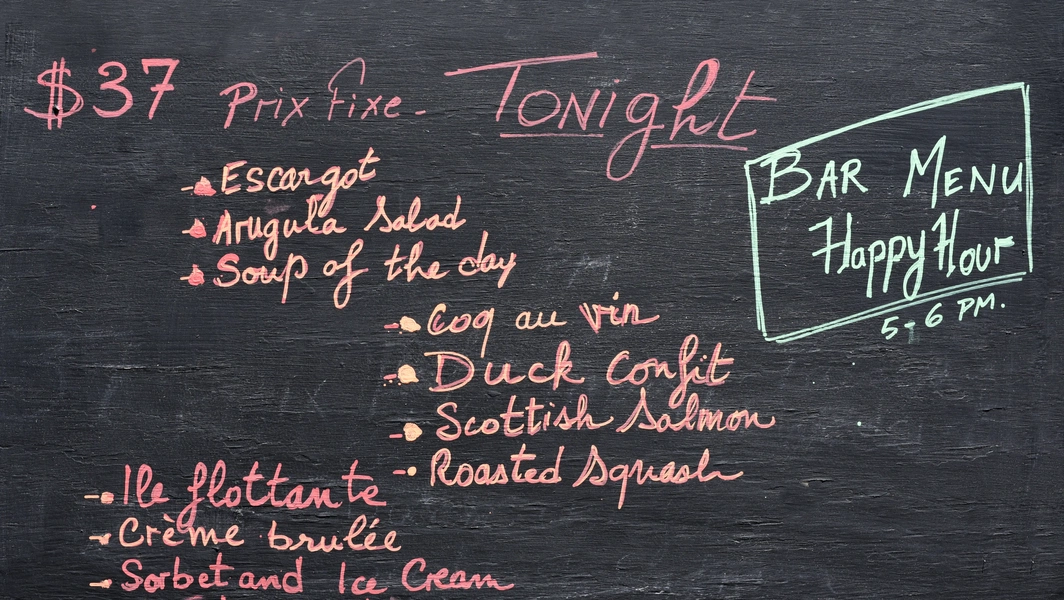 $37 Prix Fixe - Tonight
- Escargot
- Arugula Salad
- Soup of the day
- Coq au vin
- Duck Confit
- Scottish Salmon
- Roasted Squash
- Ile flottante
- Crème brulée
- Sorbet and Ice Cream
BAR MENU
Happy Hour
5-6 PM.